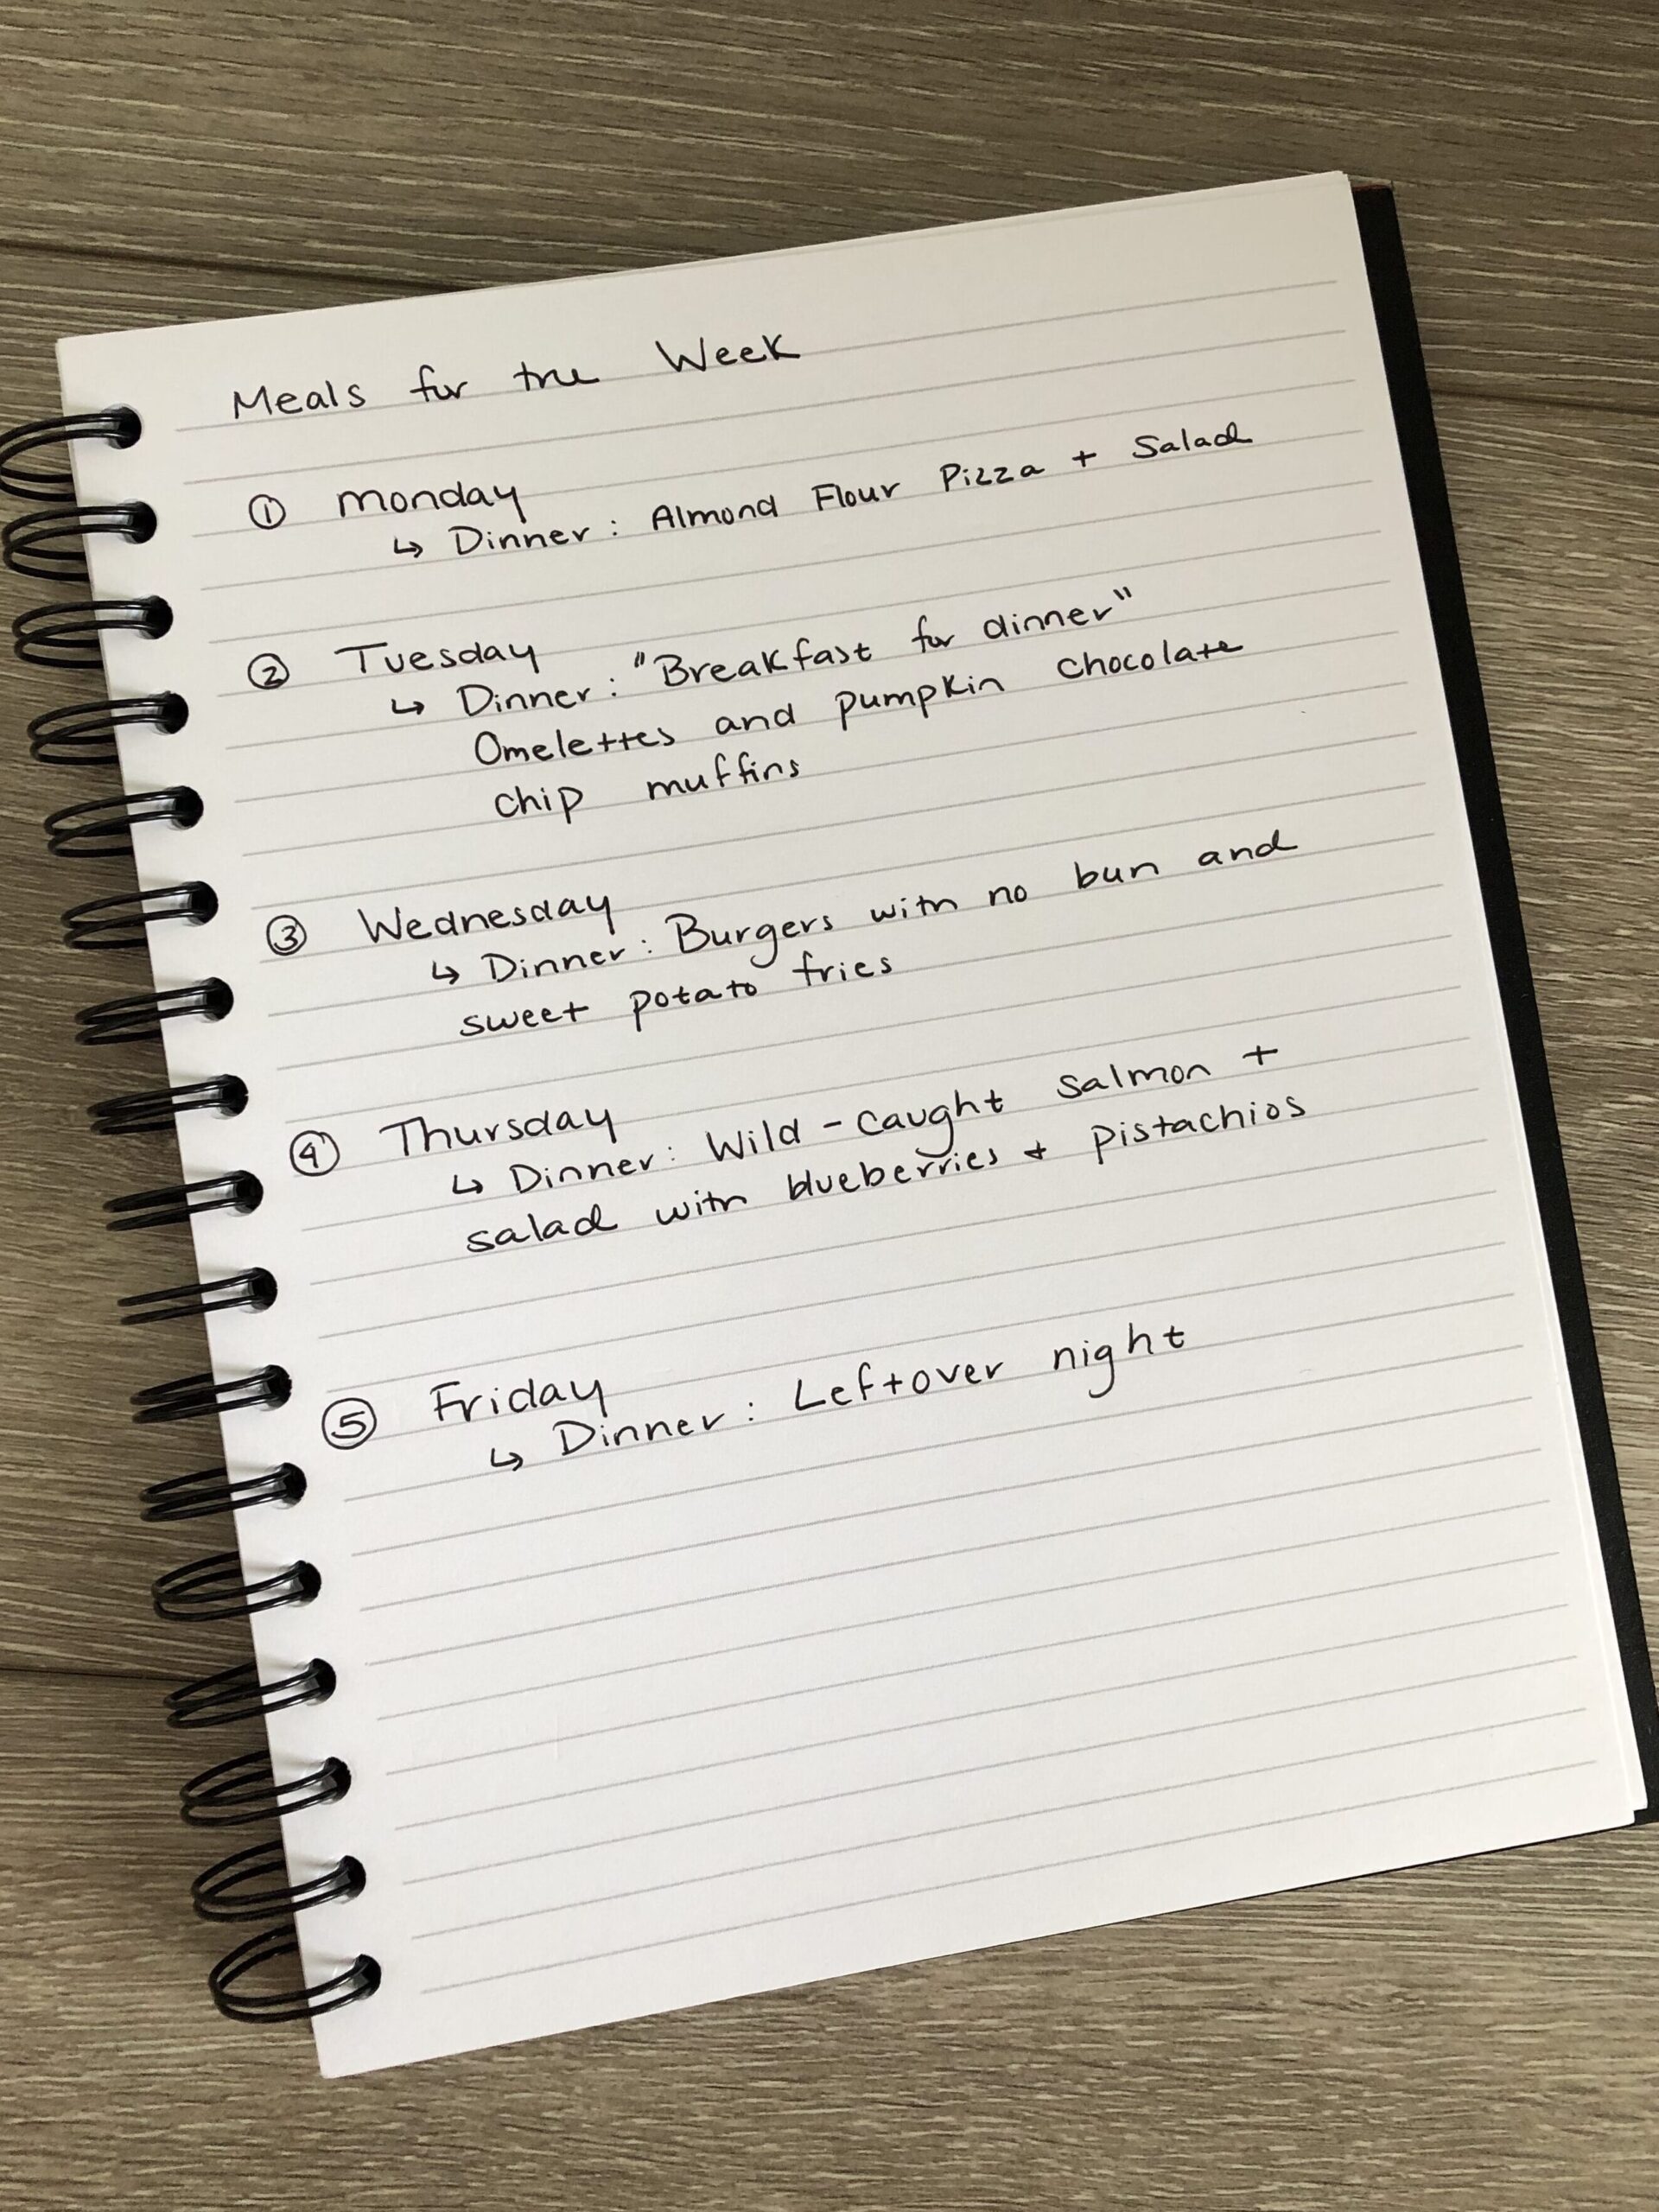 Meals for the Week
① Monday
↳ Dinner: Almond Flour Pizza + Salad
② Tuesday
↳ Dinner: "Breakfast for dinner"
Omelettes and pumpkin chocolate
chip muffins
③ Wednesday
↳ Dinner: Burgers with no bun and
sweet potato fries
④ Thursday
↳ Dinner: Wild-caught salmon +
salad with blueberries + pistachios
⑤ Friday
↳ Dinner: Leftover night